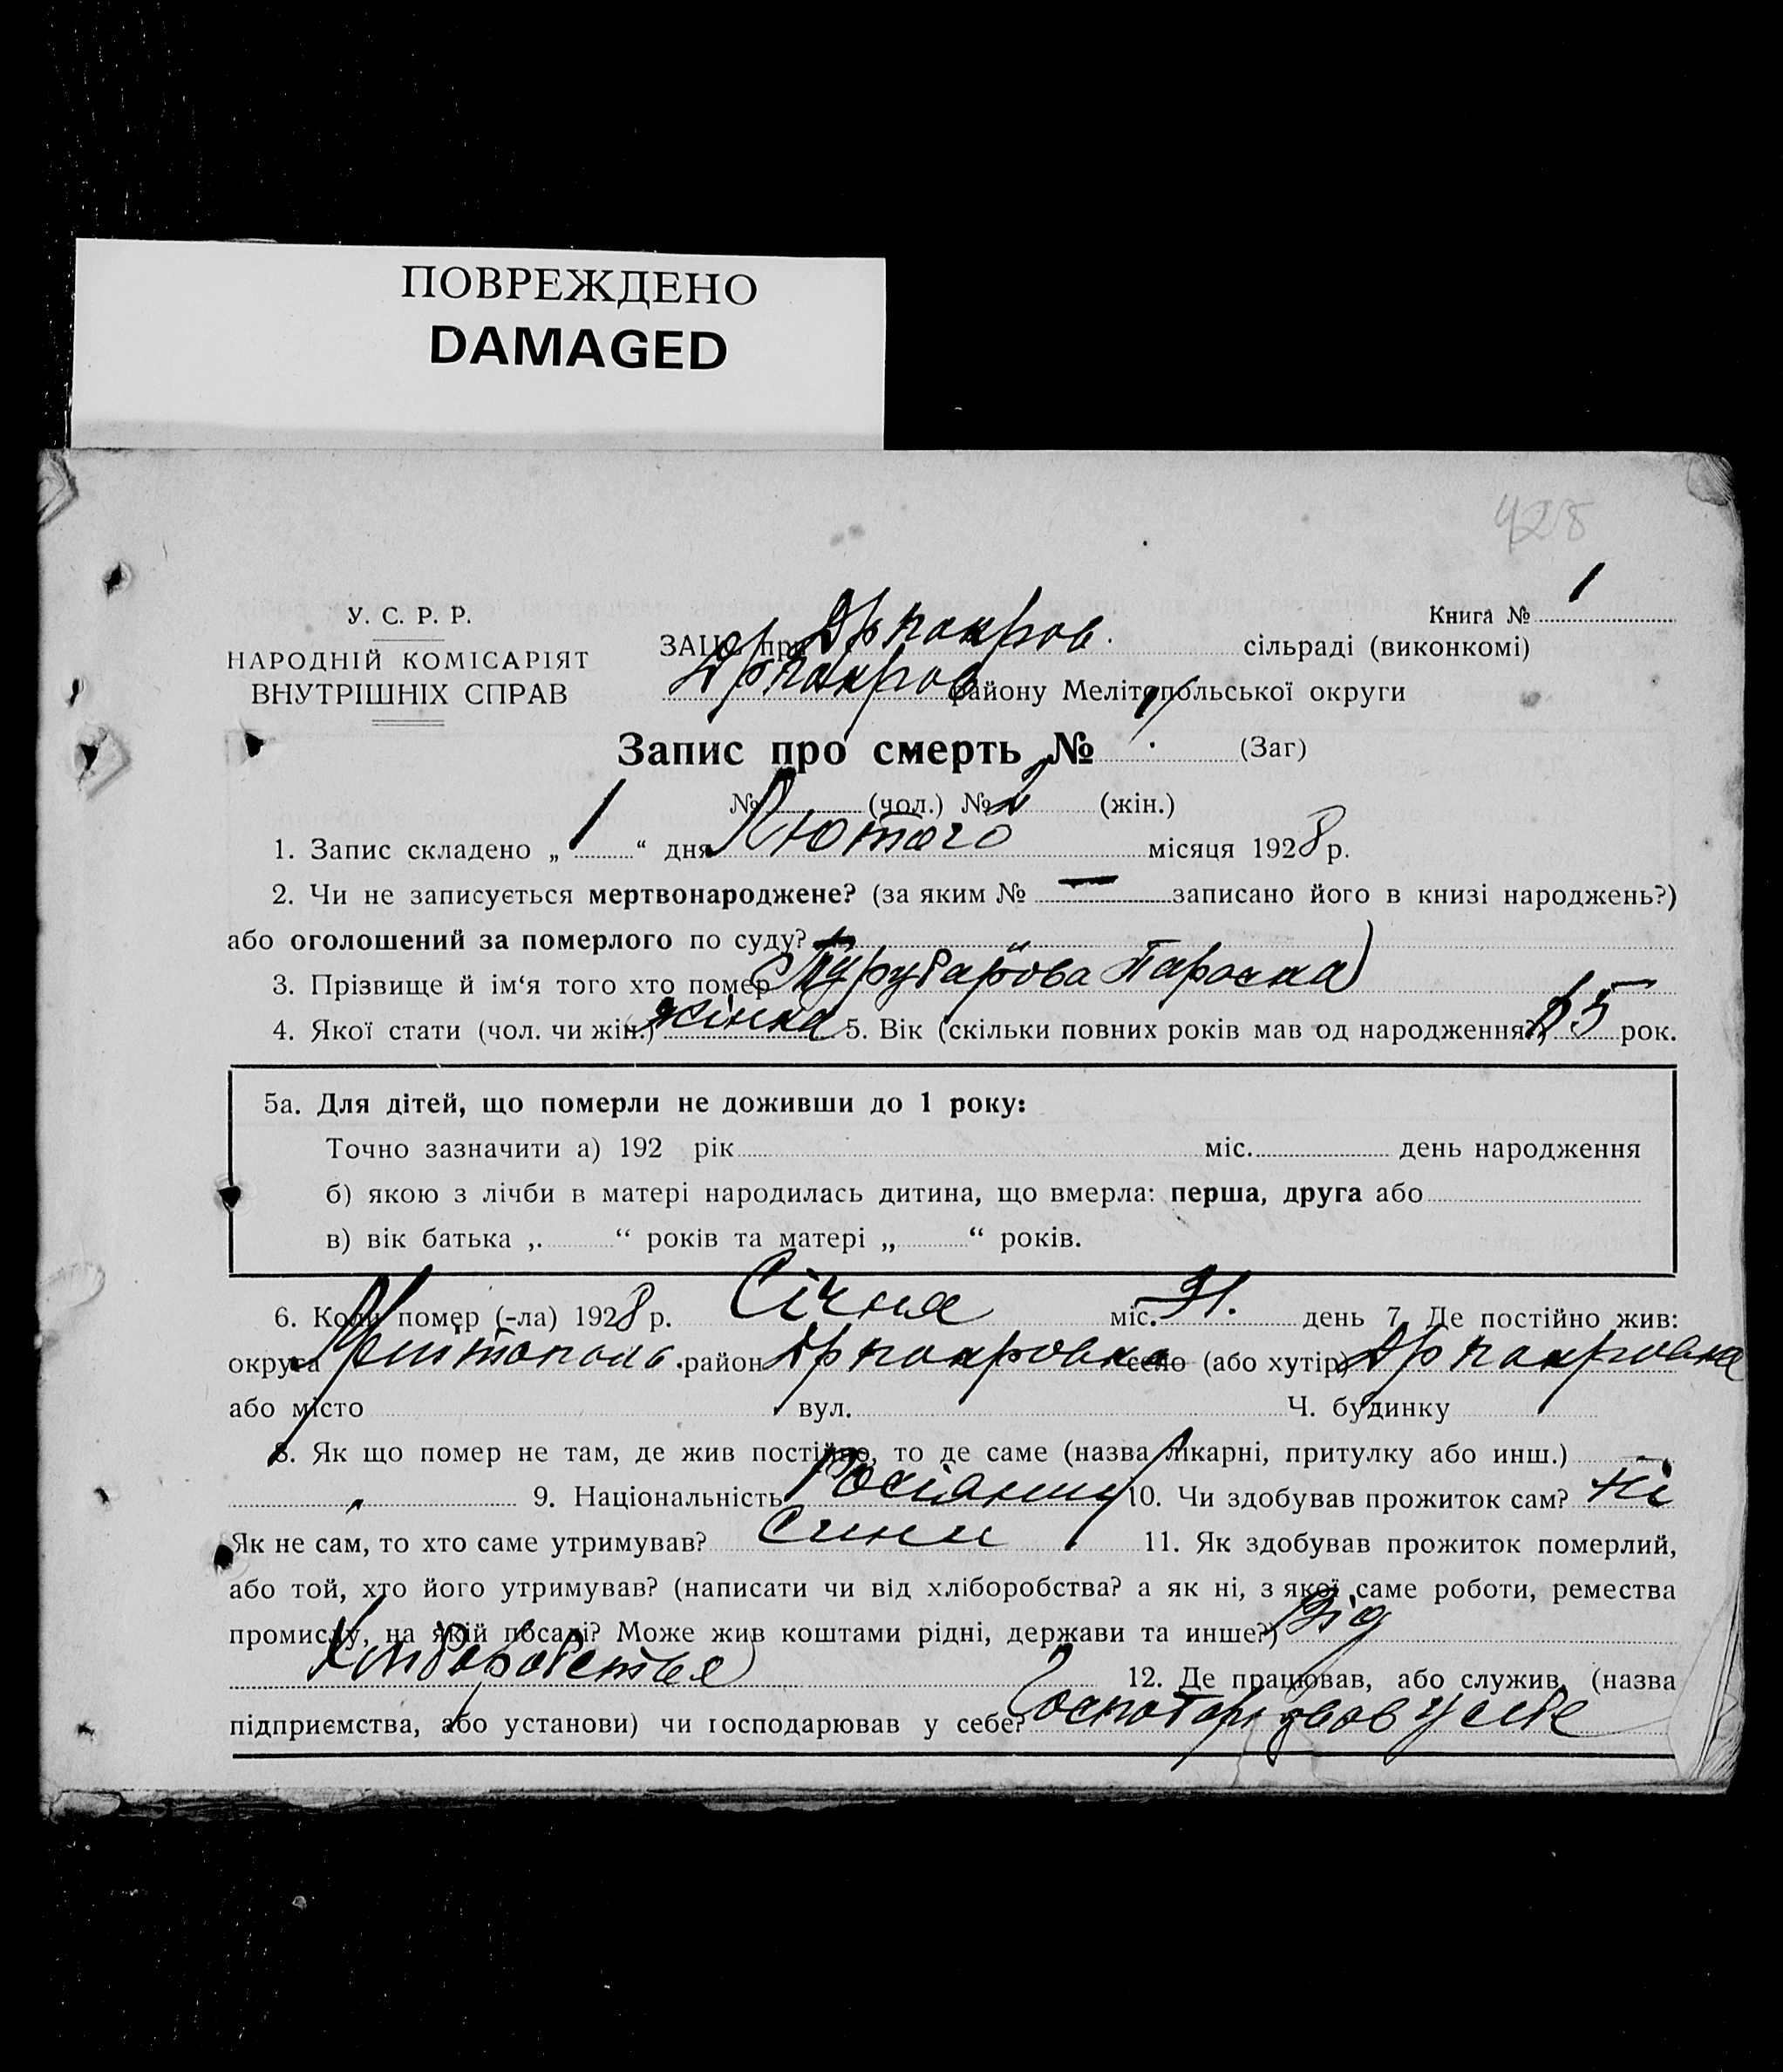 ПОВРЕЖДЕНО
DAMAGED
428
У. С. Р. Р.
НАРОДНІЙ КОМІСАРІЯТ
ВНУТРІШНІХ СПРАВ
Книга № 1
ЗАЦС при сільраді (виконкомі)
району Мелітопольської округи
Запис про смерть № (Заг)
№ (чол.) № (жін.)
1. Запис складено „ 1 “ дня Лютого місяця 1928 р.
2. Чи не записується мертвонароджене? (за яким № — записано його в книзі народжень?)
або оголошений за померлого по суду?
3. Прізвище й ім‘я того хто помер
4. Якої стати (чол. чи жін.) жінка 5. Вік (скільки повних років мав од народження?) рок.
5а. Для дітей, що померли не доживши до 1 року:
Точно зазначити а) 192 рік міс. день народження
б) якою з лічби в матері народилась дитина, що вмерла: перша, друга або
в) вік батька „ “ років та матері „ “ років.
6. Коли помер (-ла) 1928 р. Січня міс. 31. день 7. Де постійно жив:
округа район село (або хутір)
або місто вул. Ч. будинку
8. Як що помер не там, де жив постійно, то де саме (назва лікарні, притулку або инш.)
9. Національність 10. Чи здобував прожиток сам? Ні
Як не сам, то хто саме утримував? Сини 11. Як здобував прожиток померлий,
або той, хто його утримував? (написати чи від хліборобства? а як ні, з якої саме роботи, ремества
промислу, на якій посаді? Може жив коштами рідні, держави та инше?) Від
12. Де працював, або служив, (назва
підприємства, або установи) чи господарював у себе?